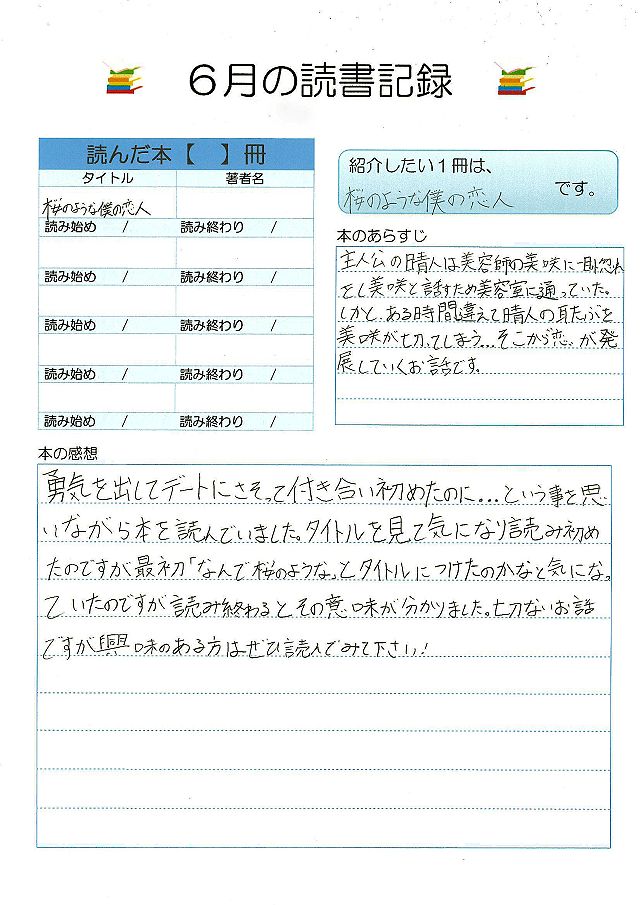 6月の読書記録
読んだ本【　】冊
タイトル　著者名
桜のような僕の恋人
読み始め　/　読み終わり　/
読み始め　/　読み終わり　/
読み始め　/　読み終わり　/
読み始め　/　読み終わり　/
読み始め　/　読み終わり　/
紹介したい1冊は、
桜のような僕の恋人　です。
本のあらすじ
主人公の晴人は美容師の美咲に一目惚れ
をし美咲と話すため美容室に通っていた。
しかし、ある時間違えて晴人の耳たぶを
美咲が切ってしまう...そこから恋が発
展していくお話です。
本の感想
勇気を出してデートにさそって付き合い初めたのに...という事を思
いながら本を読んでいました。タイトルを見て気になり読み初め
たのですが、最初「なんで桜のような」とタイトルにつけたのかなと気になっ
ていたのですが読み終わるとその意味が分かりました。切ないお話
ですが興味のある方はぜひ読んでみて下さい!